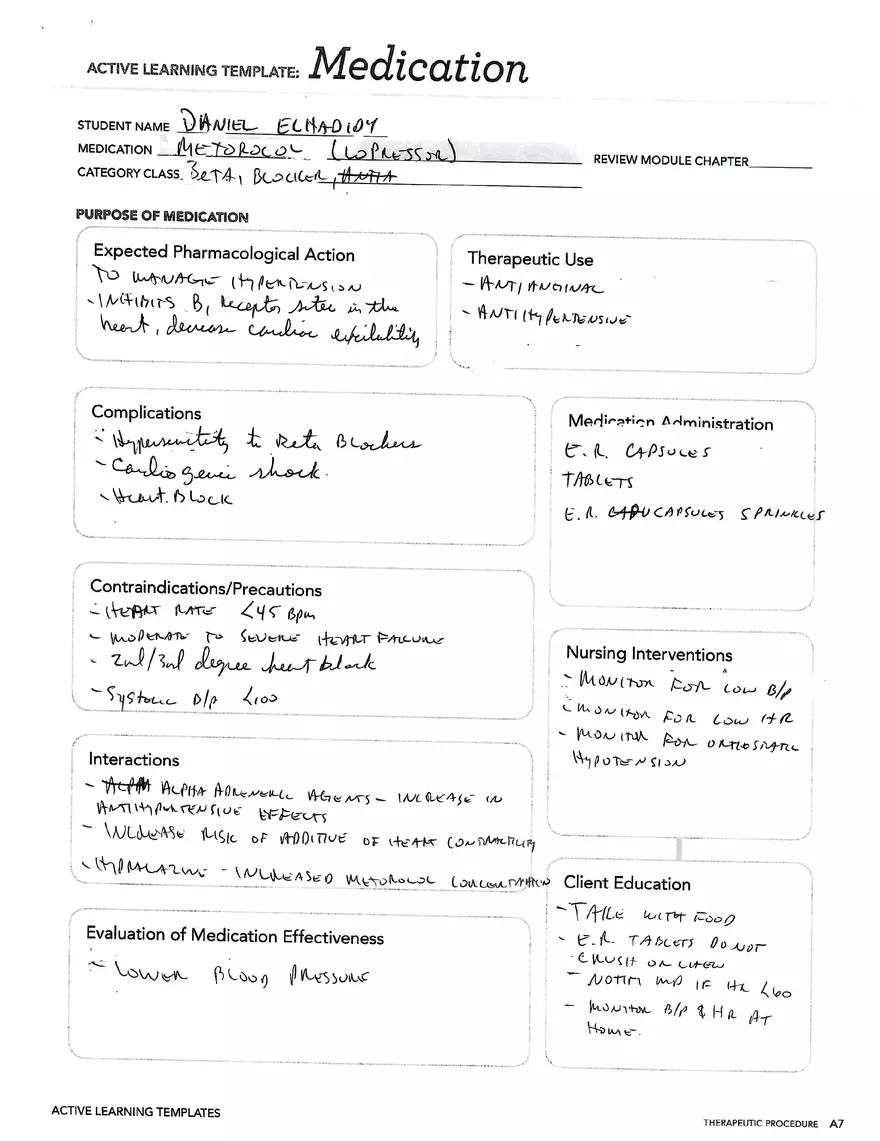 ACTIVE LEARNING TEMPLATE: Medication
STUDENT NAME DANIEL ELHADIDY
MEDICATION METOROCOL (LOPRESSOR)
REVIEW MODULE CHAPTER
CATEGORY CLASS BETA, BLOCKER,
PURPOSE OF MEDICATION
Expected Pharmacological Action
TO MANAGE HYPERTENSION
- INHIBITS B, Receptor sites in the
heart, decrease cardiac excitability
Therapeutic Use
- ANTI ANGINAL
- ANTI HYPERTENSIVE
Complications
- Hypersensitity to Beta Blockers
- Cardiogenic shock.
- Heart. Block
Medication Administration
E.R. CAPSULES
TABLETS
E.R. CAPSULES SPRINKLES
Contraindications/Precautions
- HEART RATE <45 Bpm
- MODERATE TO SEVERE HEART FAILURE
- 2nd/3rd degree heart block
- Systolic B/P <100
Nursing Interventions
- MONITOR FOR LOW B/P
- MONITOR FOR LOW HR
- MONITOR FOR ORTHOSTATIC
HYPOTENSION
Interactions
- ALPHA ADRENERGIC AGENTS - INCREASE IN
ANTIHYPERTENSIVE EFFECTS
- INCREASE RISK OF ADDITIVE OF HEART CONTRACTILITY
- HYDRALAZINE - INCREASED METOROCOL CONCENTRATION
Client Education
- TAKE WITH FOOD
- E.R. TABLETS DO NOT
CRUSH OR CHEW
- NOTIFY MD IF HR <60
- MONITOR B/P & HR AT
HOME.
Evaluation of Medication Effectiveness
- LOWER BLOOD PRESSURE
ACTIVE LEARNING TEMPLATES
THERAPEUTIC PROCEDURE A7